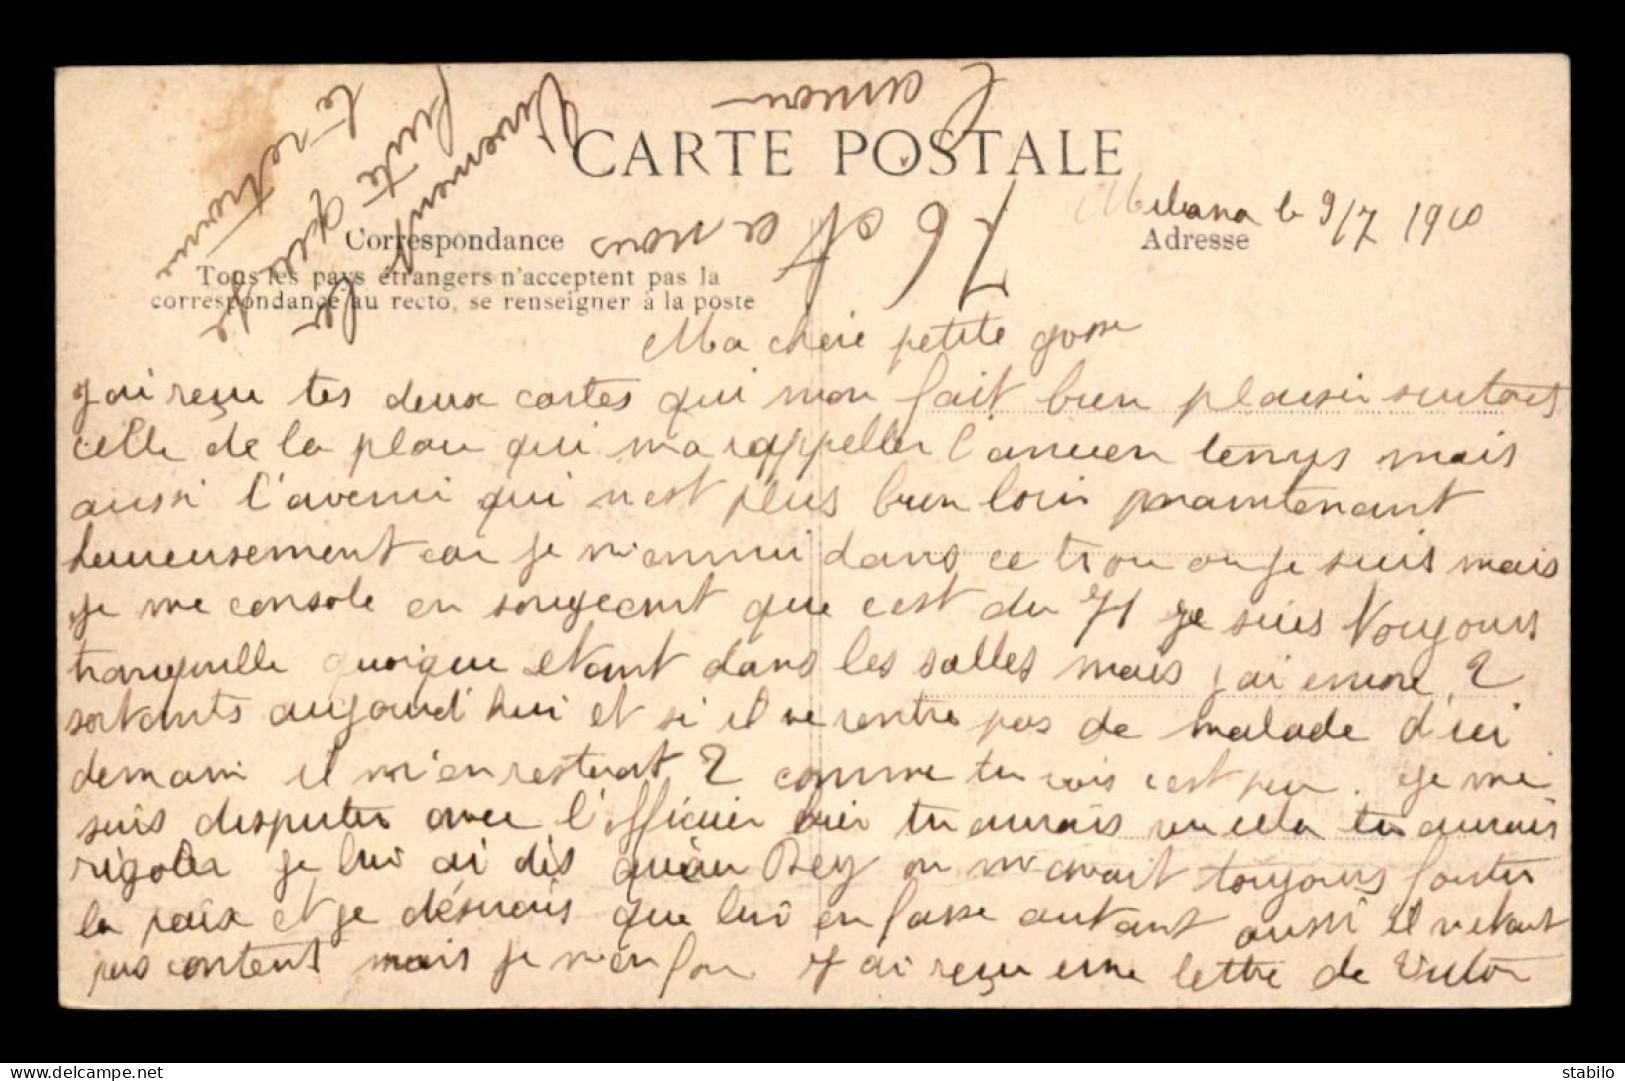 CARTE POSTALE
Correspondance
Adresse
Tous les pays étrangers n'acceptent pas la
correspondance au recto, se renseigner à la poste
le 9/7 1910
76 et a nous
Vivement
la
petite
le retrouve
Ma chere petite gosse
J ai reçu tes deux cartes qui mon fait bien plaisir surtout
celle de la plau qui ma rappeller l ancien temps mais
aussi l'avenir qui n est plus bien loin maintenant
heureusement car je m'ennui dans ce trou ou je suis mais
je me console en songeant que c est du 71 je suis toujours
tranquille quoique etant dans les salles mais j ai encore 2
sortants aujourd'hui et si il ne rentre pas de malade d'ici
demain il m'en restent 2 comme tu vois c est peu. je me
suis disputer avec l'officier hier tu aurais vu cela tu aurais
rigoler je lui ai dis qu'au Dey on m'avait toujours foutu
la paix et je désirais que lui en fasse autant aussi il n etait
pas content mais je m'en fou J ai reçu une lettre de Victor